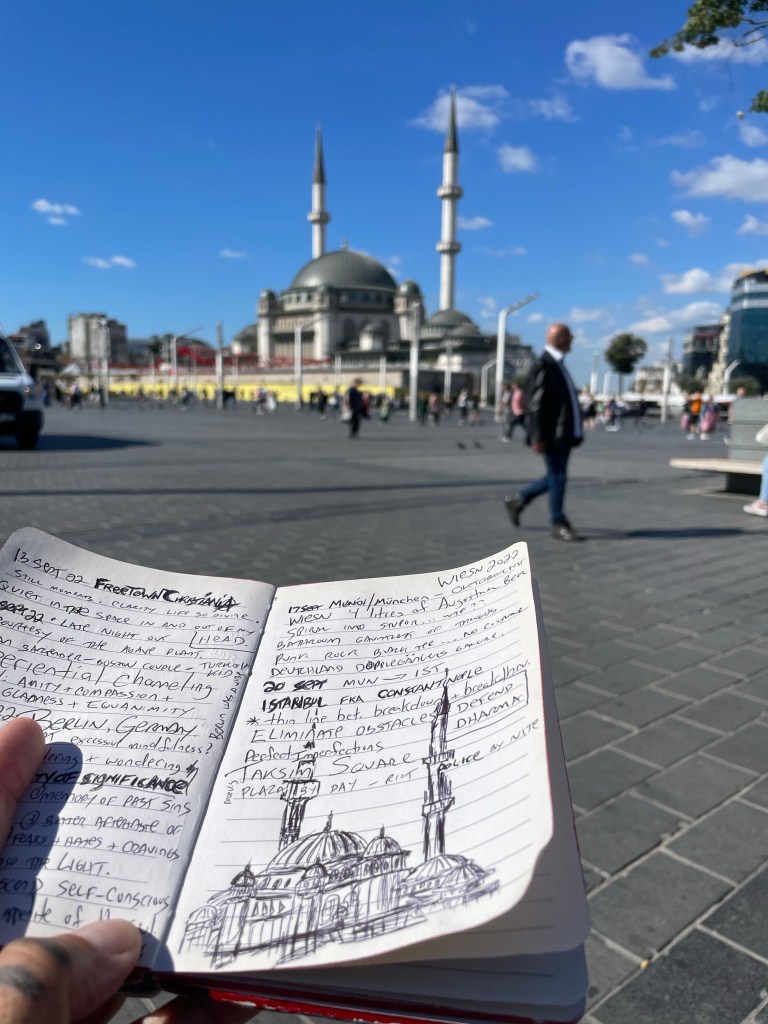 13 SEPT 22 FREETOWN CHRISTIANIA
STILL MOMENTS. CLARITY. LIFE SO DIVINE.
QUIET IN THE SPACE IN AND OUT OF MY
HEAD
SEPT 22 • LATE NIGHT OUT
COURTESY OF THE AGAVE PLANT.
BARTENDER - COUPLE - TURKISH
KID
eriential channeling
AMITY + COMPASSION +
GLADNESS + EQUANIMITY
22 BERLIN, GERMANY
excessive mindfulness?
ering + wondering
TY OF SIGNIFICANCE
@ MEMORY OF PAST SINS
@ BITTER AFTERTASTE OF
FEARS + HATES + CRAVINGS
THE LIGHT.
SCEND SELF-CONSCIOUS
opposite of
WIESN 2022
17 SEPT MUNICH/München - OKTOBERFEST
WIESN 4 litres of Augustiner BEER
SPIRAL INTO STUPOR...
BATHROOM GAUNTLETS OF
PUNK ROCK BLACK
DEUTCHLAND DOPPLEGÄNGERS GALORE.
20 SEPT MUN → IST
ISTANBUL FKA CONSTANTINOPLE
* thin line bet. breakdown + breakthru.
ELIMINATE OBSTACLES
DEFEND
DHARMA
Perfect Imperfections
TAKSIM SQUARE
PLAZA BY DAY - RIOT POLICE BY NITE